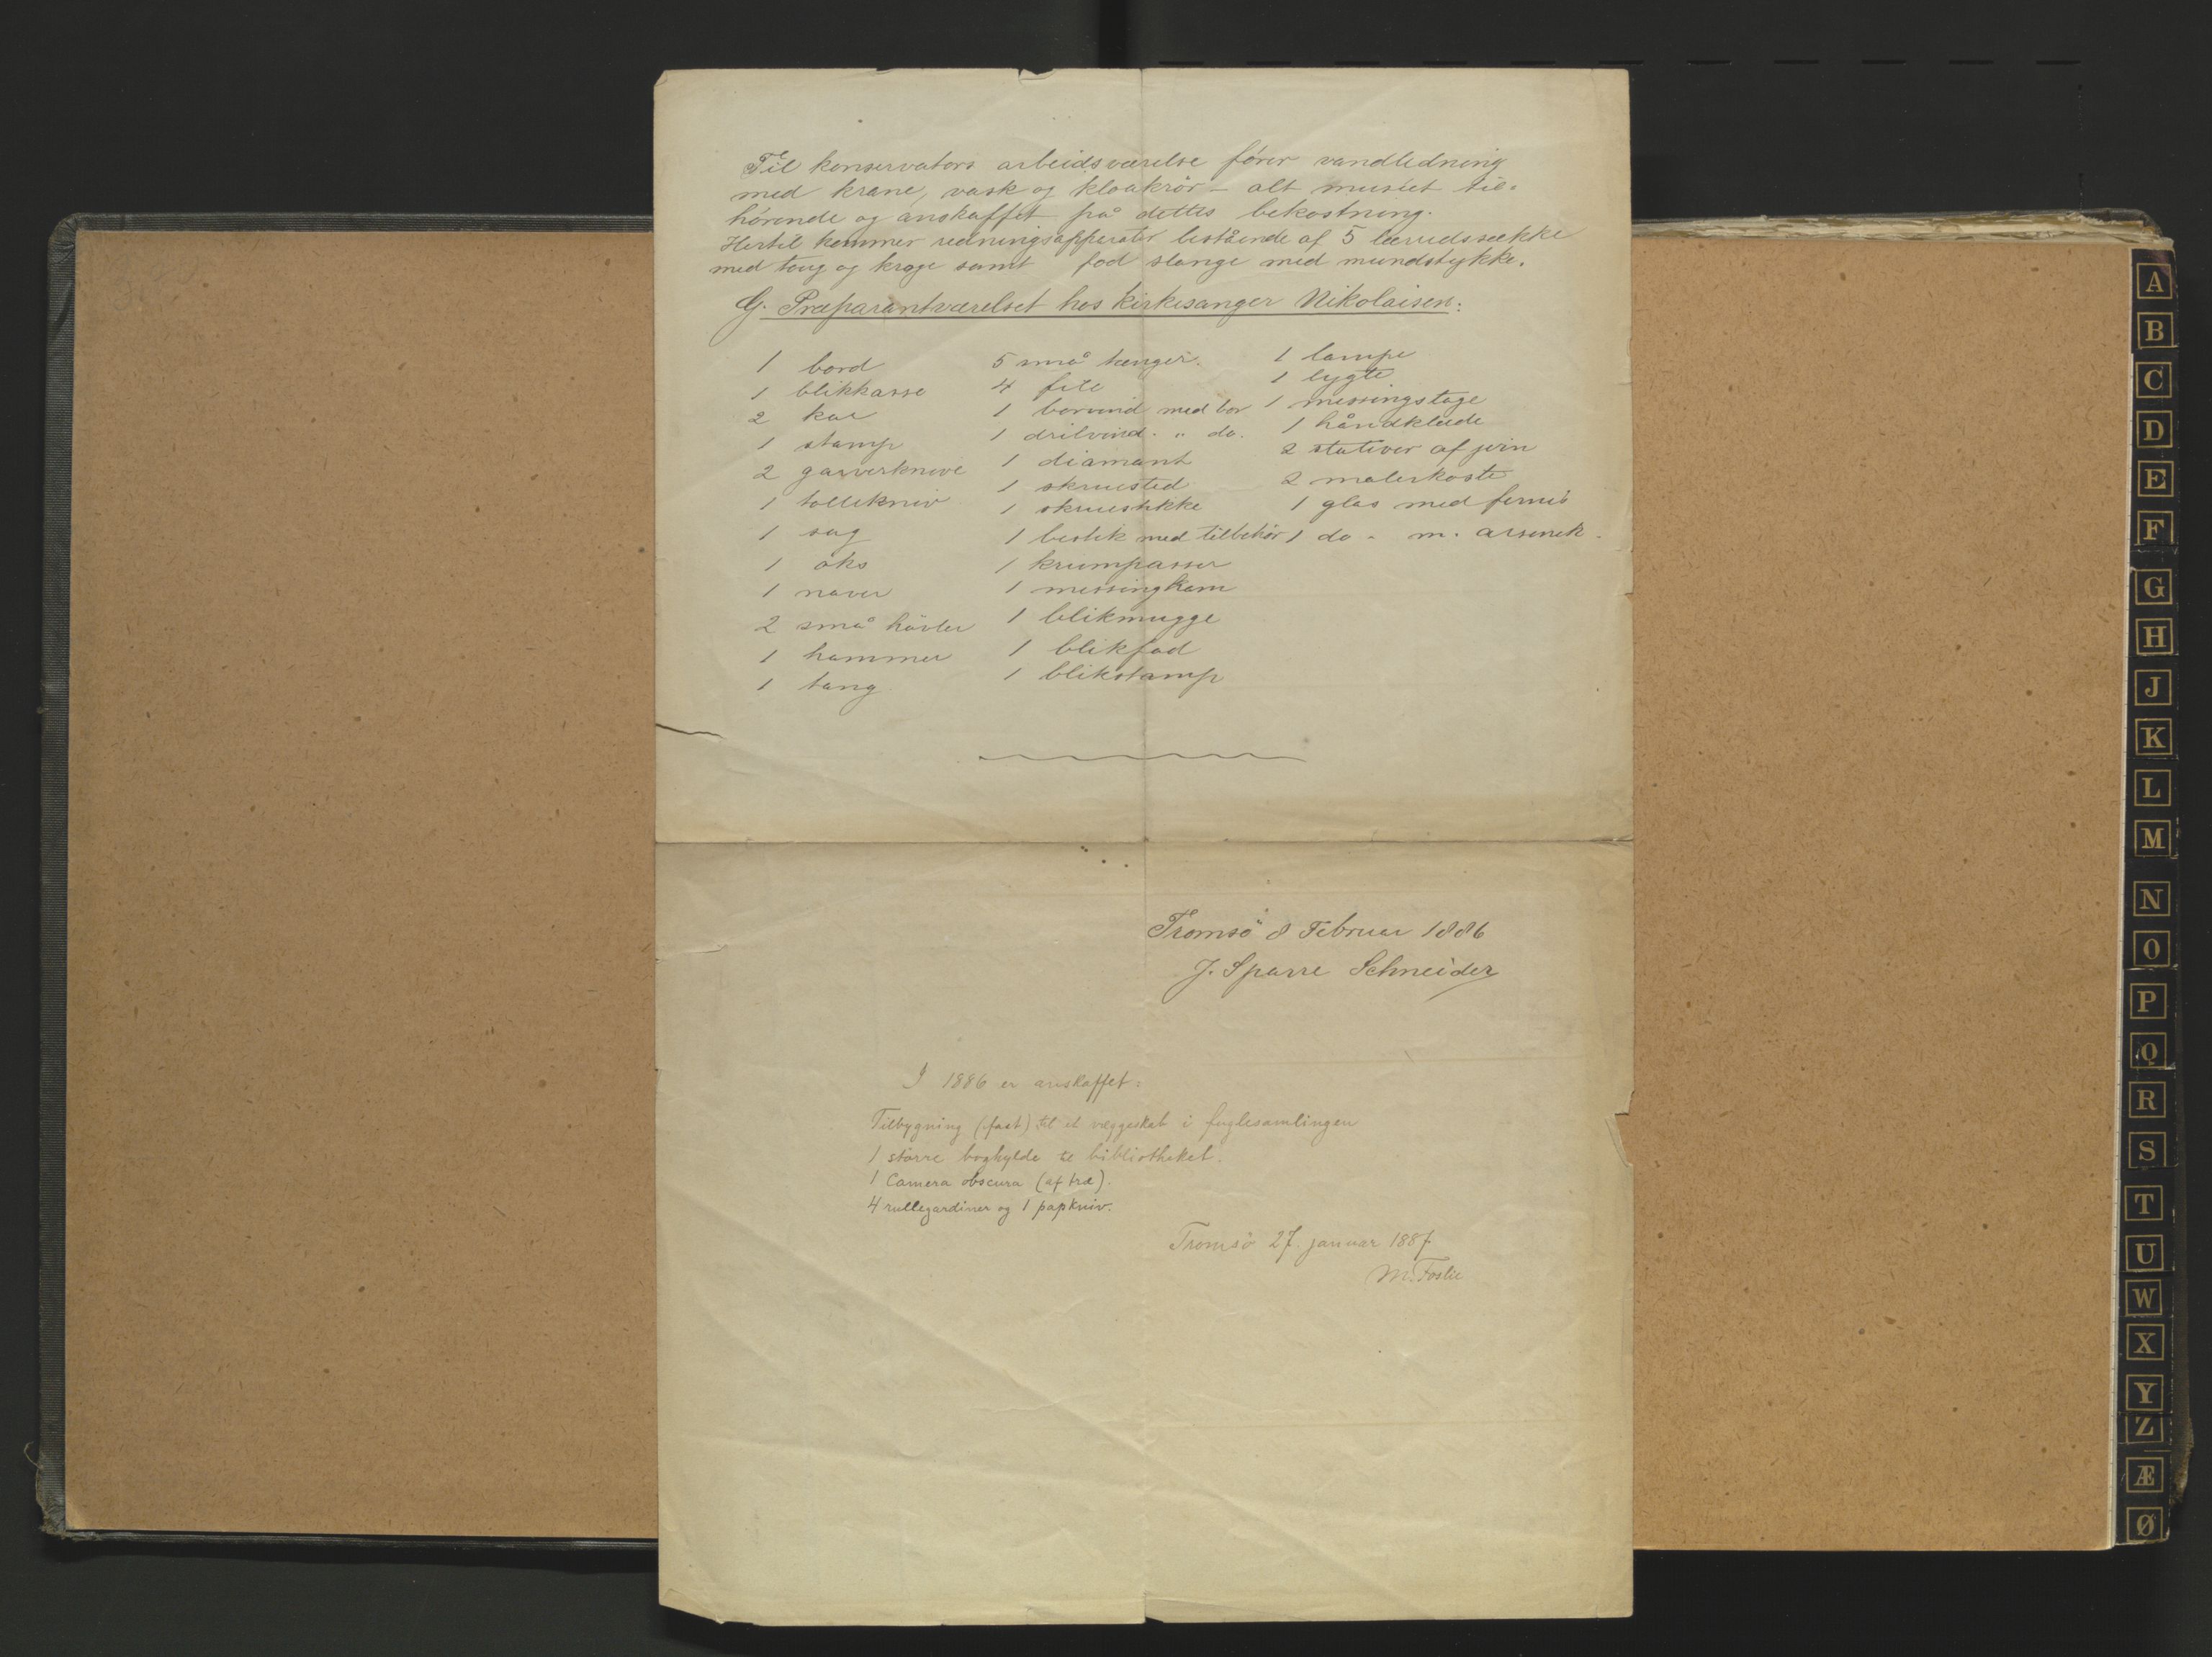 Til konservators arbeidsværelse fører vandledning
med krane, vask og kloakrör – alt museet til-
hörende og anskaffet på dettes bekostning.
Hertil kommer redningsapparater bestående af 5 lærredssække
med toug og kroge samt fod slange med mundstykke.
G. Præparantværelset hos kirkesanger Nikolaisen:
1 bord
1 blikkasse
2 kar
1 stamp
2 garverknive
1 tollekniv
1 sag
1 öks
1 naver
2 små hövler
1 hammer
1 tang
5 små tænger.
4 file
1 borvind med bor
1 drilvind. " do.
1 diamant
1 skruested
1 skruestikke
1 bestik med tilbehör
1 krumpasser
1 messingkam
1 blikmugge
1 blikfad
1 blikstamp
1 lampe
1 lygte
1 messingstage
1 håndklæde
2 stativer af jern
2 malerkoste
1 glas med fernis
1 do - m. arsenik.
Tromsö 8 Februar 1886
J. Sparre Schneider
I 1886 er anskaffet:
Tilbygning (fast) til et vægskab i fuglesamlingen
1 större boghylde til bibliotheket.
1 Camera obscura (af træ).
4 rullegardiner og 1 papkniv.
Tromsö 27. januar 1887
M. Foslie
A
B
C
D
E
F
G
H
J
K
L
M
N
O
P
Q
R
S
T
U
W
X
Y
Z
Æ
Ø